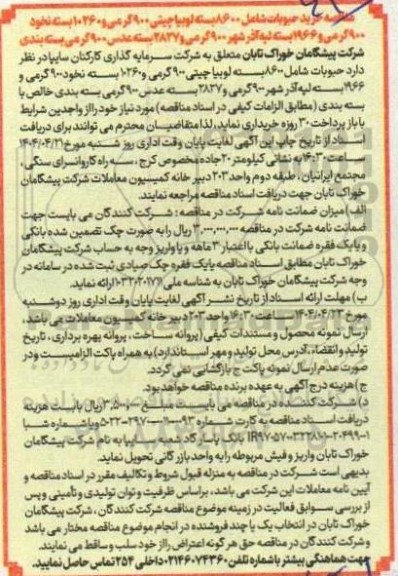 مناقصه خرید حبوبات شامل ۸۶۰۰بسته لوبیا چیتی ۹۰۰ گرمی و ۱۰۲۶۰ بسته نخود
۹۰۰ گرمی و ۱۹۶۶بسته لپه آذر شهر ۹۰۰ گرمی و ۲۸۲۷ بسته عدس ۹۰۰ گرمی بسته بندی
شرکت پیشگامان خوراک تابان متعلق به شرکت سرمایه گذاری کارکنان سایپا در نظر
دارد حبوبات شامل ۸۶۰۰بسته لوبیا چیتی ۹۰۰ گرمی و ۱۰۲۶۰ بسته نخود ۹۰۰ گرمی و
۱۹۶۶بسته لپه آذر شهر ۹۰۰ گرمی و ۲۸۲۷ بسته عدس ۹۰۰ گرمی بسته بندی خالص با
بسته بندی (مطابق الزامات کیفی در اسناد مناقصه) مورد نیاز خود را از واجدین شرایط
با باز پرداخت ۳۰ روزه خریداری نماید، لذا متقاضیان محترم می توانند برای دریافت
اسناد از تاریخ چاپ این آگهی لغایت پایان وقت اداری روز شنبه مورخ ۱۴۰۴/۰۴/۲۱
ساعت ۱۴:۳۰ به نشانی کیلومتر ۲۰ جاده مخصوص کرج، سه راه کاروانسرای سنگی،
مجتمع ایرانیان، طبقه دوم واحد ۲۰۳ دبیر خانه کمیسیون معاملات شرکت پیشگامان
خوراک تابان جهت دریافت اسناد مناقصه مراجعه نمایند.
الف) میزان ضمانت نامه شرکت در مناقصه: شرکت کنندگان می بایست جهت
ضمانت نامه شرکت در مناقصه ۳,۰۰۰,۰۰۰,۰۰۰ ریال را به صورت چک تضمین شده بانکی
و یا یک فقره ضمانت بانکی با اعتبار ۳ ماهه و یا واریز وجه به حساب شرکت پیشگامان
خوراک تابان مطابق اسناد مناقصه یا یک فقره چک صیادی ثبت شده در سامانه در
وجه شرکت پیشگامان خوراک تابان به شناسه ملی ارائه نماید.
ب) مهلت ارائه اسناد از تاریخ نشر آگهی لغایت پایان وقت اداری روز دوشنبه
مورخ ۱۴۰۴/۰۴/۲۳ ساعت ۱۶:۳۰ واحد ۲۰۳ دبیر خانه کمیسیون معاملات می باشد،
ارسال نمونه محصول و مستندات کیفی (پروانه ساخت، پروانه بهره برداری، تاریخ
تولید و انقضاء، آدرس محل تولید و مهر استاندارد) به همراه پاکت الزامیست و در
صورت عدم ارسال نمونه پاکت ج بازگشایی نمی گردد.
ج) هزینه درج آگهی به عهده برنده مناقصه خواهد بود.
د) شرکت کننده در مناقصه می بایست مبلغ ریال بابت هزینه
دریافت اسناد مناقصه به کارت شماره و یا شماره شبا
بانک پاسارگاد شعبه سایپا به نام شرکت پیشگامان
خوراک تابان واریز و فیش مربوطه را به واحد بازرگانی تحویل نماید.
بدیهی است شرکت در مناقصه به منزله قبول شروط و تکالیف مقرر در اسناد مناقصه و
آیین نامه معاملات این شرکت می باشد، براساس ظرفیت و توان تولیدی و تأمینی و پس
از بررسی سوابق فعالیت در زمینه موضوع مناقصه شرکت کنندگان، شرکت پیشگامان
خوراک تابان در انتخاب یک یا چند فروشنده در انجام موضوع مناقصه مختار می باشد
و شرکت کنندگان در مناقصه حق هر گونه اعتراض را از خود سلب و ساقط می نمایند.
جهت هماهنگی بیشتر با شماره تلفن ۰۲۱۴۶۰۷۴۳۶۰ داخلی ۲۵۳ تماس حاصل نمایید.